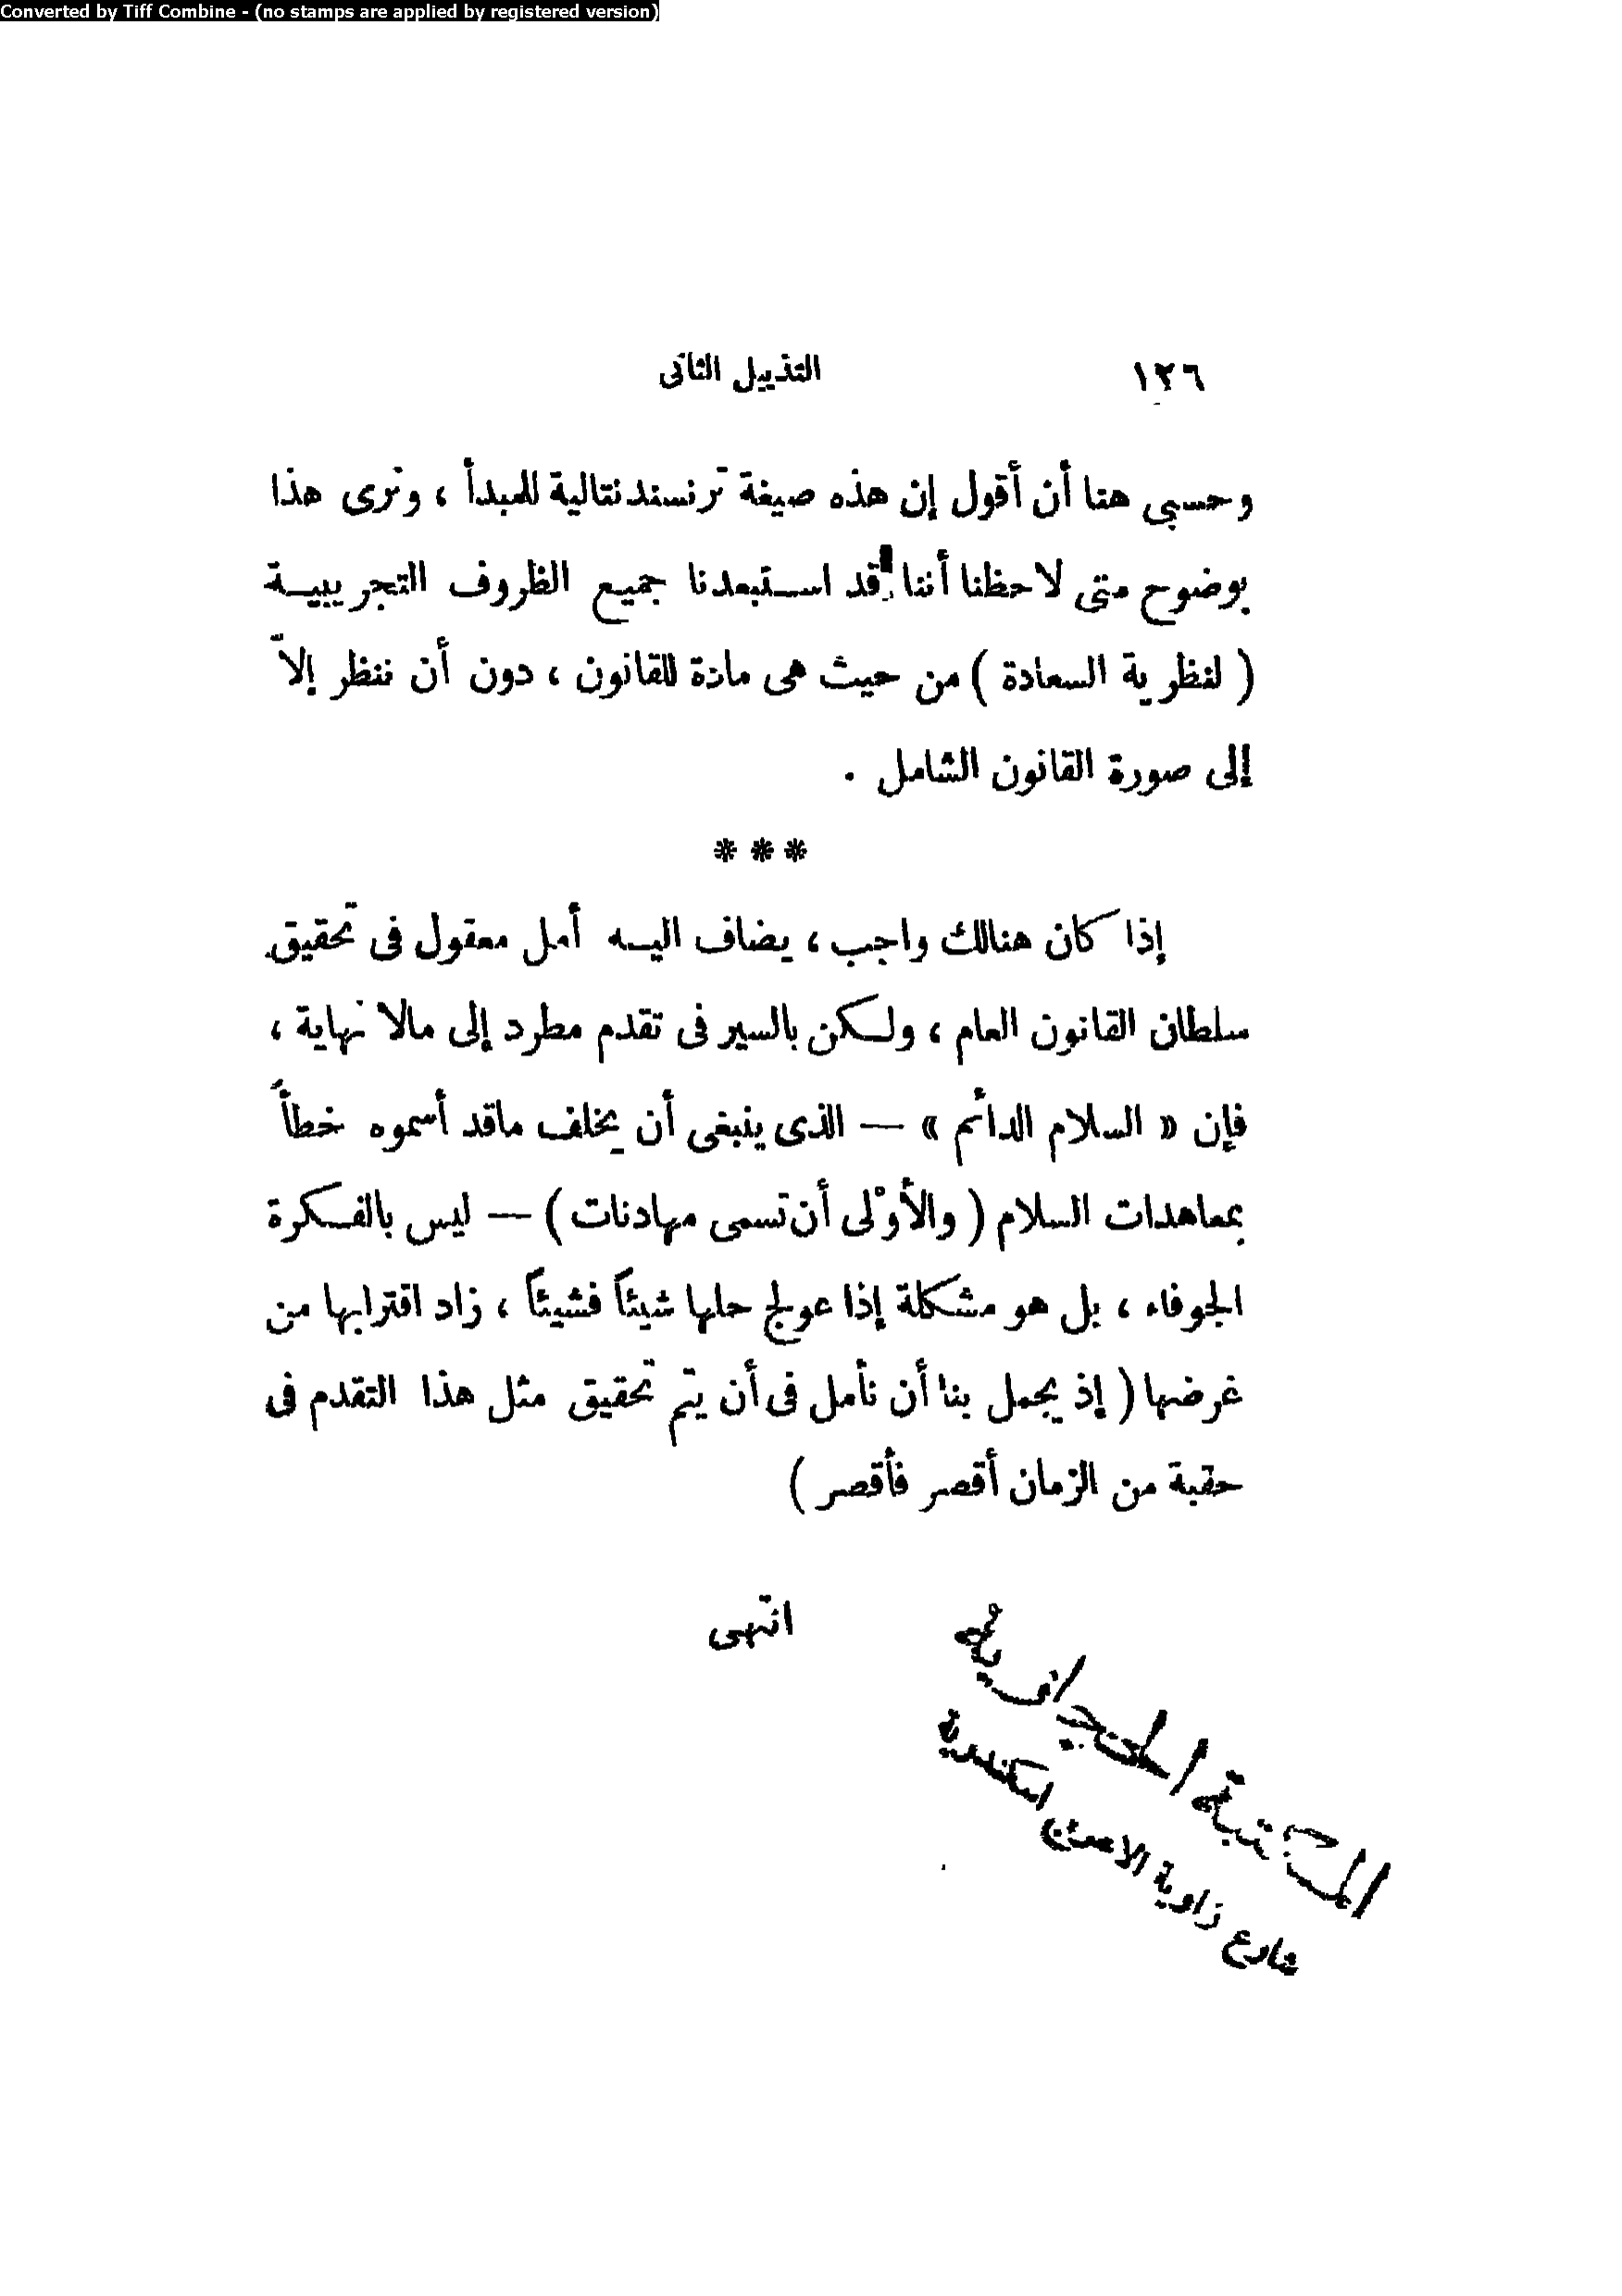 Converted by Tiff Combine - (no stamps are applied by registered version)
١٢٦ التذييل الثانى
وحسبى هنا أن أقول إن هذه صيغة ترنسندنتالية للمبدأ ، ونرى هذا
بوضوح متى لاحظنا أننا قد استبعدنا جميع الظروف التجريبية
( لنظرية السعادة ) من حيث هى مادة للقانون ، دون أن ننظر إلاّ
إلى صورة القانون الشامل .
***
إذا كان هنالك واجب ، يضاف اليه أمل معقول فى تحقيق
سلطان القانون العام ، ولكن بالسير فى تقدم مطرد إلى مالا نهاية ،
فإن « السلام الدائم » — الذى ينبغى أن يخلف ماقد أسموه خطأً
بمعاهدات السلام ( والأوْلى أن تسمى مهادنات ) — ليس بالفكرة
الجوفاء ، بل هو مشكلة إذا عولج حلها شيئاً فشيئاً ، زاد اقترابها من
غرضها ( إذ يجمل بنا أن نأمل فى أن يتم تحقيق مثل هذا التقدم فى
حقبة من الزمان أقصر فأقصر )
انتهى
المكتبة
شارع زاوية اسكندرية